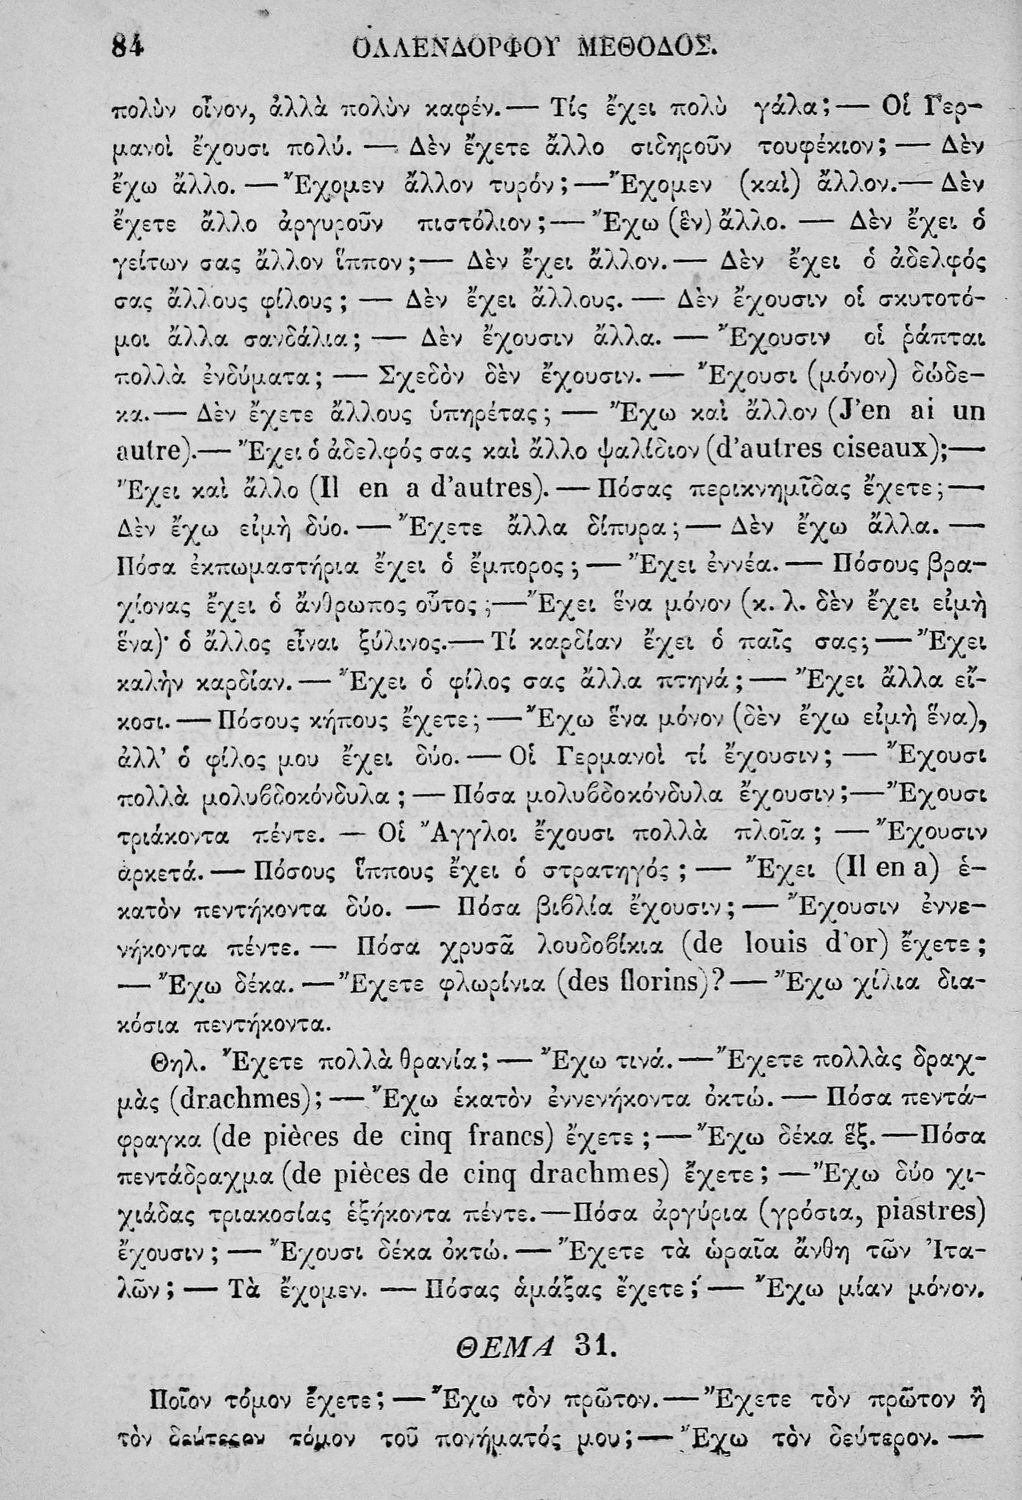 84 ΟΛΛΕΝΔΟΡΦΟΥ ΜΕΘΟΔΟΣ.
πολὺν οἶνον, ἀλλὰ πολὺν καφέν.— Τίς ἔχει πολὺ γάλα;— Οἱ Γερ-
μανοὶ ἔχουσι πολύ. — Δὲν ἔχετε ἄλλο σιδηροῦν τουφέκιον; — Δὲν
ἔχω ἄλλο. — Ἔχομεν ἄλλον τυρόν; — Ἔχομεν (καὶ) ἄλλον.— Δὲν
ἔχετε ἄλλο ἀργυροῦν πιστόλιον; — Ἔχω (ἓν) ἄλλο. — Δὲν ἔχει ὁ
γείτων σας ἄλλον ἵππον;— Δὲν ἔχει ἄλλον.— Δὲν ἔχει ὁ ἀδελφός
σας ἄλλους φίλους; — Δὲν ἔχει ἄλλους. — Δὲν ἔχουσιν οἱ σκυτοτό-
μοι ἄλλα σανδάλια; — Δὲν ἔχουσιν ἄλλα. — Ἔχουσιν οἱ ῥάπται
πολλὰ ἐνδύματα; — Σχεδὸν δὲν ἔχουσιν. — Ἔχουσι (μόνον) δώδε-
κα.— Δὲν ἔχετε ἄλλους ὑπηρέτας; — Ἔχω καὶ ἄλλον (J'en ai un
autre).— Ἔχει ὁ ἀδελφός σας καὶ ἄλλο ψαλίδιον (d'autres ciseaux);—
Ἔχει καὶ ἄλλο (Il en a d'autres). — Πόσας περικνημῖδας ἔχετε;—
Δὲν ἔχω εἰμὴ δύο. — Ἔχετε ἄλλα δίπυρα; — Δὲν ἔχω ἄλλα. —
Πόσα ἐκπωμαστήρια ἔχει ὁ ἔμπορος; — Ἔχει ἐννέα. — Πόσους βρα-
χίονας ἔχει ὁ ἄνθρωπος οὗτος;—Ἔχει ἕνα μόνον (κ. λ. δὲν ἔχει εἰμὴ
ἕνα)· ὁ ἄλλος εἶναι ξύλινος.— Τί καρδίαν ἔχει ὁ παῖς σας; — Ἔχει
καλὴν καρδίαν. — Ἔχει ὁ φίλος σας ἄλλα πτηνά; — Ἔχει ἄλλα εἴ-
κοσι. — Πόσους κήπους ἔχετε; — Ἔχω ἕνα μόνον (δὲν ἔχω εἰμὴ ἕνα),
ἀλλ' ὁ φίλος μου ἔχει δύο. — Οἱ Γερμανοὶ τί ἔχουσιν; — Ἔχουσι
πολλὰ μολυβδοκόνδυλα; — Πόσα μολυβδοκόνδυλα ἔχουσιν;—Ἔχουσι
τριάκοντα πέντε. — Οἱ Ἄγγλοι ἔχουσι πολλὰ πλοῖα; — Ἔχουσιν
ἀρκετά. — Πόσους ἵππους ἔχει ὁ στρατηγός; — Ἔχει (Il en a) ἑ-
κατὸν πεντήκοντα δύο. — Πόσα βιβλία ἔχουσιν; — Ἔχουσιν ἐννε-
νήκοντα πέντε. — Πόσα χρυσᾶ λουδοβίκια (de louis d'or) ἔχετε;
— Ἔχω δέκα. — Ἔχετε φλωρίνια (des florins)? — Ἔχω χίλια δια-
κόσια πεντήκοντα.
Θηλ. Ἔχετε πολλὰ θρανία; — Ἔχω τινά. — Ἔχετε πολλὰς δραχ-
μὰς (drachmes); — Ἔχω ἑκατὸν ἐννενήκοντα ὀκτώ. — Πόσα πεντά-
φραγκα (de pièces de cinq francs) ἔχετε; — Ἔχω δέκα ἕξ. — Πόσα
πεντάδραχμα (de pièces de cinq drachmes) ἔχετε; — Ἔχω δύο χι-
χιάδας τριακοσίας ἑξήκοντα πέντε.—Πόσα ἀργύρια (γρόσια, piastres)
ἔχουσιν; — Ἔχουσι δέκα ὀκτώ. — Ἔχετε τὰ ὡραῖα ἄνθη τῶν Ἰτα-
λῶν; — Τὰ ἔχομεν. — Πόσας ἁμάξας ἔχετε; — Ἔχω μίαν μόνον.
ΘΕΜΑ 31.
Ποῖον τόμον ἔχετε; — Ἔχω τὸν πρῶτον. — Ἔχετε τὸν πρῶτον ἢ
τὸν δεύτερον τόμον τοῦ πονήματός μου; — Ἔχω τὸν δεύτερον. —